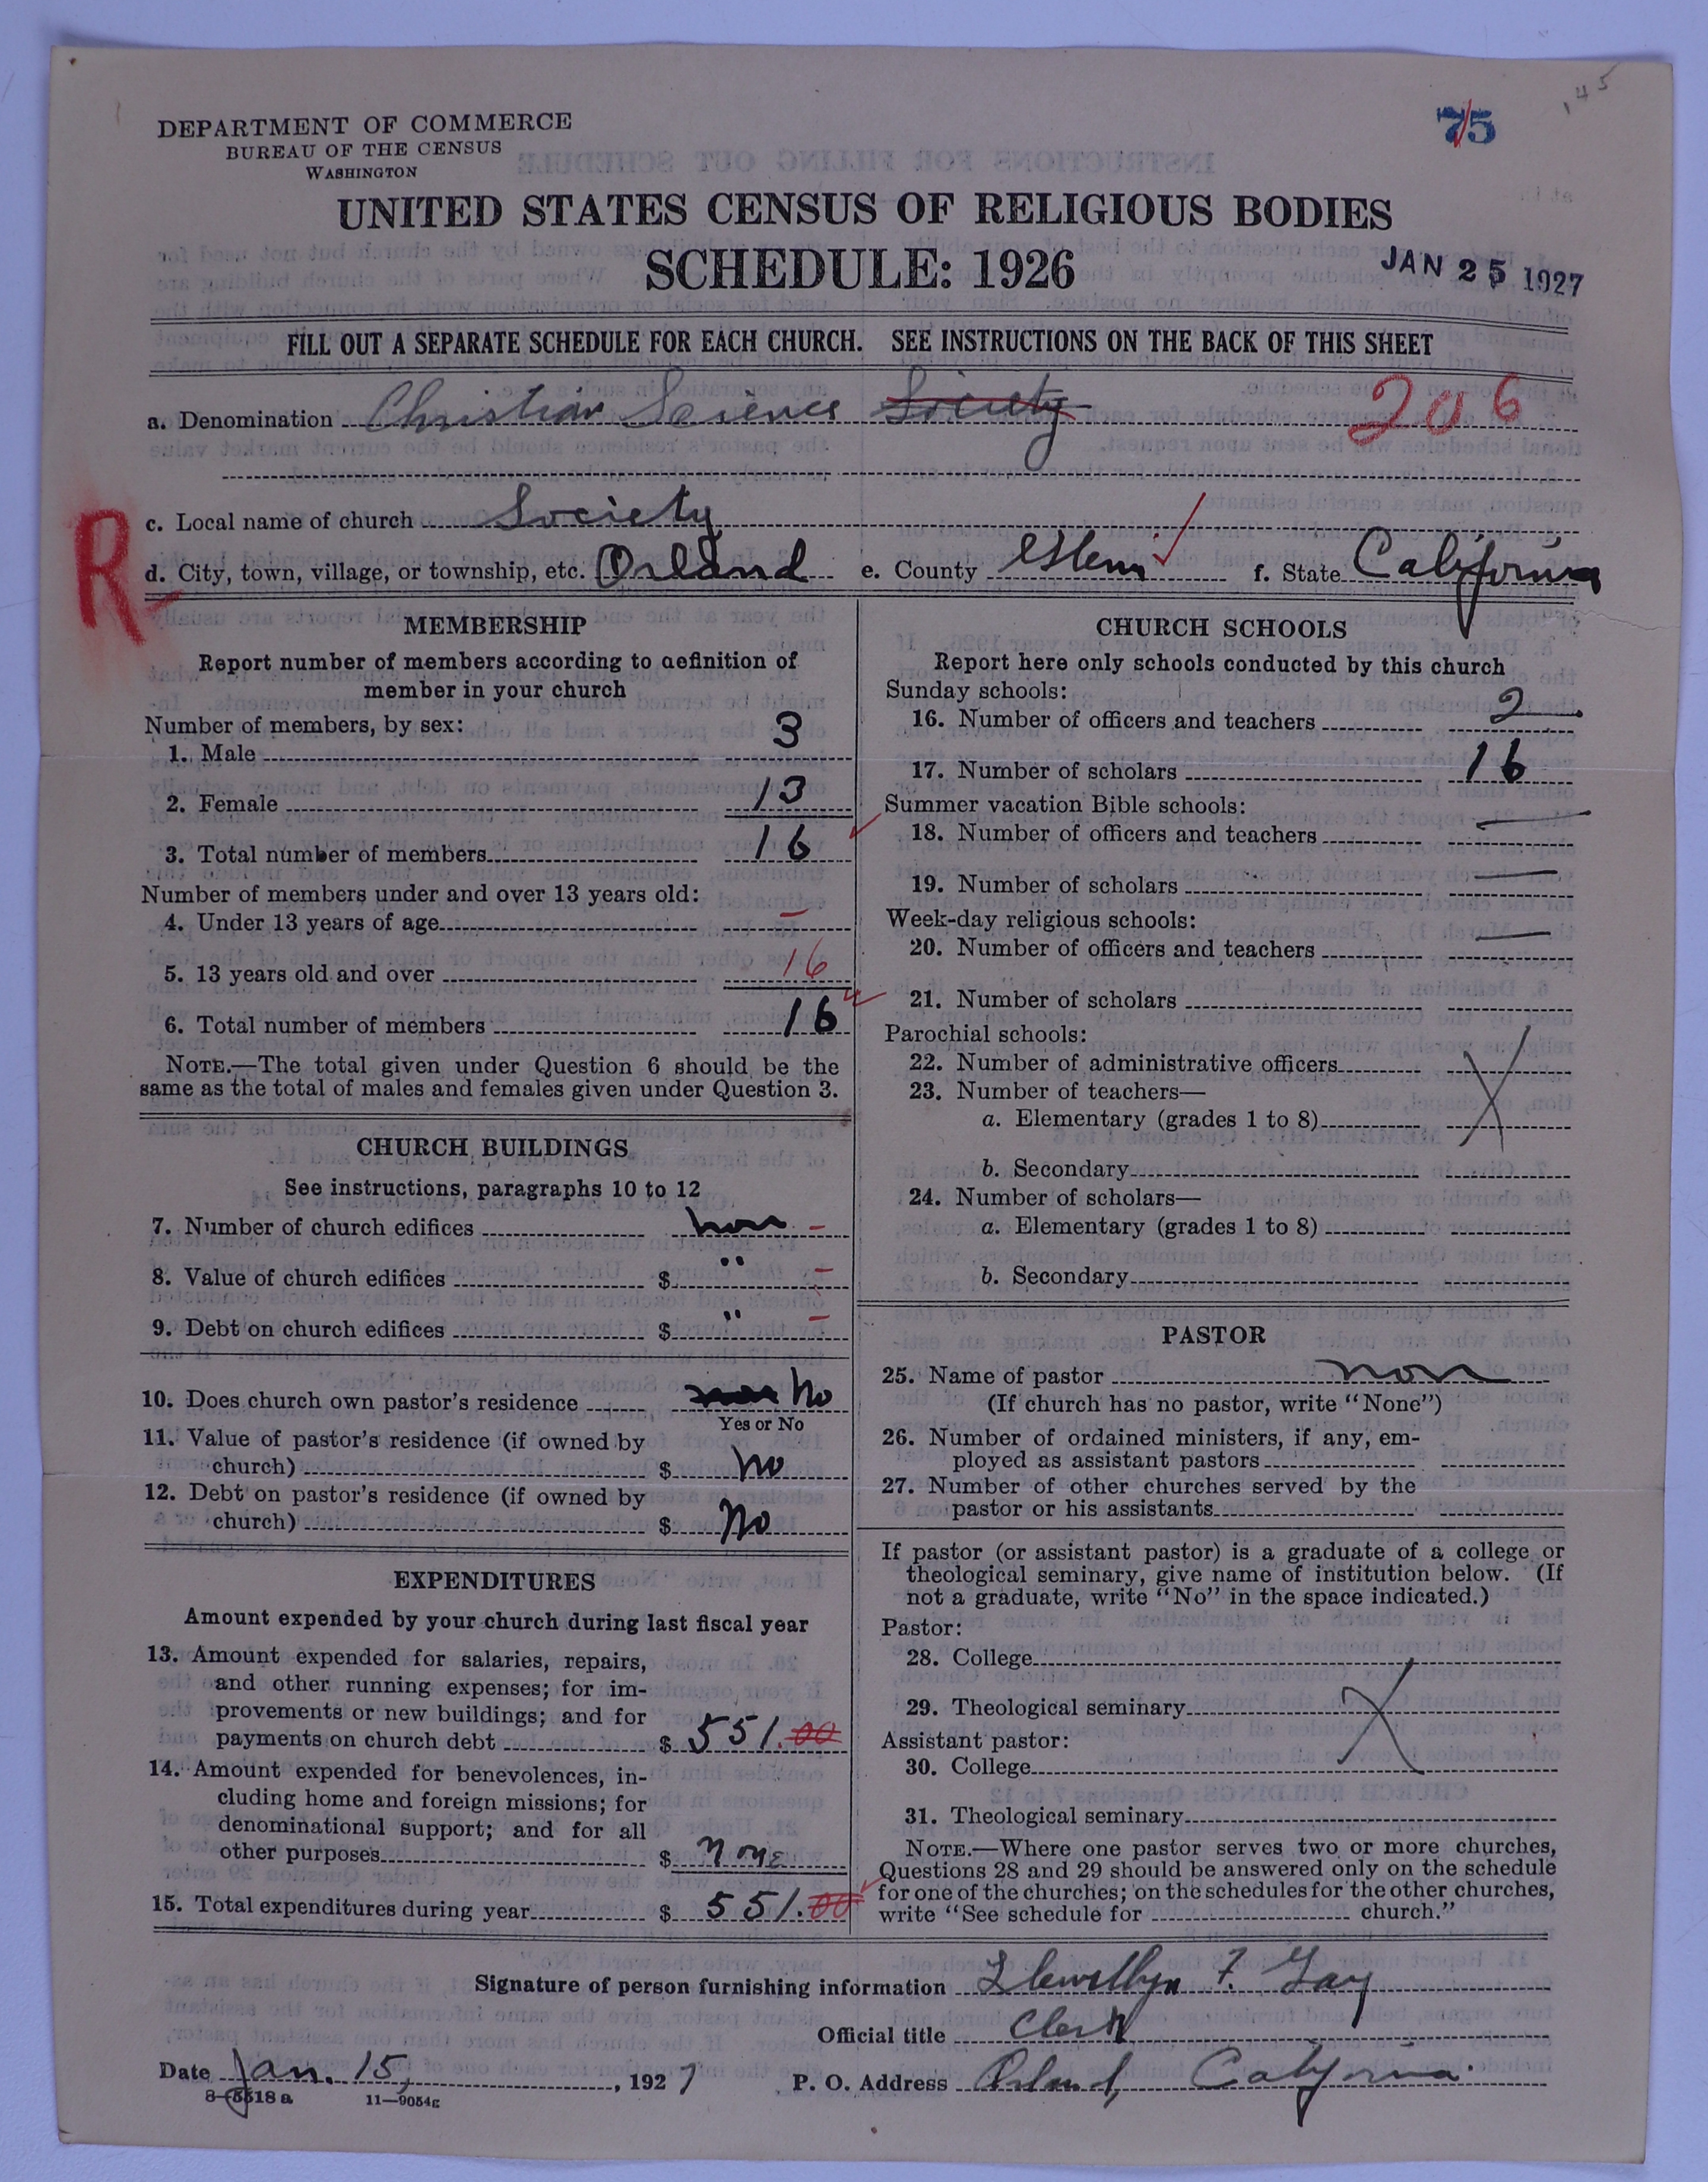 145
75
DEPARTMENT OF COMMERCE
BUREAU OF THE CENSUS
WASHINGTON
UNITED STATES CENSUS OF RELIGIOUS BODIES
SCHEDULE: 1926
JAN 25 1927
FILL OUT A SEPARATE SCHEDULE FOR EACH CHURCH. SEE INSTRUCTIONS ON THE BACK OF THIS SHEET
a. Denomination Christian Science Society 206
R
c. Local name of church Society
d. City, town, village, or township, etc. Orland e. County Glenn f. State California
MEMBERSHIP
Report number of members according to definition of
member in your church
Number of members, by sex:
1. Male 3
2. Female 13
3. Total number of members 16
Number of members under and over 13 years old:
4. Under 13 years of age –
5. 13 years old and over 16
6. Total number of members 16
NOTE.—The total given under Question 6 should be the
same as the total of males and females given under Question 3.
CHURCH BUILDINGS
See instructions, paragraphs 10 to 12
7. Number of church edifices non –
8. Value of church edifices $ " –
9. Debt on church edifices $ " –
10. Does church own pastor's residence No
Yes or No
11. Value of pastor's residence (if owned by
church) $ No
12. Debt on pastor's residence (if owned by
church) $ No
EXPENDITURES
Amount expended by your church during last fiscal year
13. Amount expended for salaries, repairs,
and other running expenses; for im-
provements or new buildings; and for
payments on church debt $ 551.00
14. Amount expended for benevolences, in-
cluding home and foreign missions; for
denominational support; and for all
other purposes $ none
15. Total expenditures during year $ 551.00
CHURCH SCHOOLS
Report here only schools conducted by this church
Sunday schools:
16. Number of officers and teachers 2
17. Number of scholars 16
Summer vacation Bible schools:
18. Number of officers and teachers —
19. Number of scholars —
Week-day religious schools:
20. Number of officers and teachers —
21. Number of scholars
Parochial schools:
22. Number of administrative officers
23. Number of teachers—
a. Elementary (grades 1 to 8)
b. Secondary
24. Number of scholars—
a. Elementary (grades 1 to 8)
b. Secondary
PASTOR
25. Name of pastor non
(If church has no pastor, write "None")
26. Number of ordained ministers, if any, em-
ployed as assistant pastors
27. Number of other churches served by the
pastor or his assistants
If pastor (or assistant pastor) is a graduate of a college or
theological seminary, give name of institution below. (If
not a graduate, write "No" in the space indicated.)
Pastor:
28. College
29. Theological seminary
Assistant pastor:
30. College
31. Theological seminary
NOTE.—Where one pastor serves two or more churches,
Questions 28 and 29 should be answered only on the schedule
for one of the churches; on the schedules for the other churches,
write "See schedule for church."
Signature of person furnishing information Llewellyn F. Gay
Official title Clerk
Date Jan. 15, , 1927 P. O. Address Orland, California
8—5518 a 11—9054g